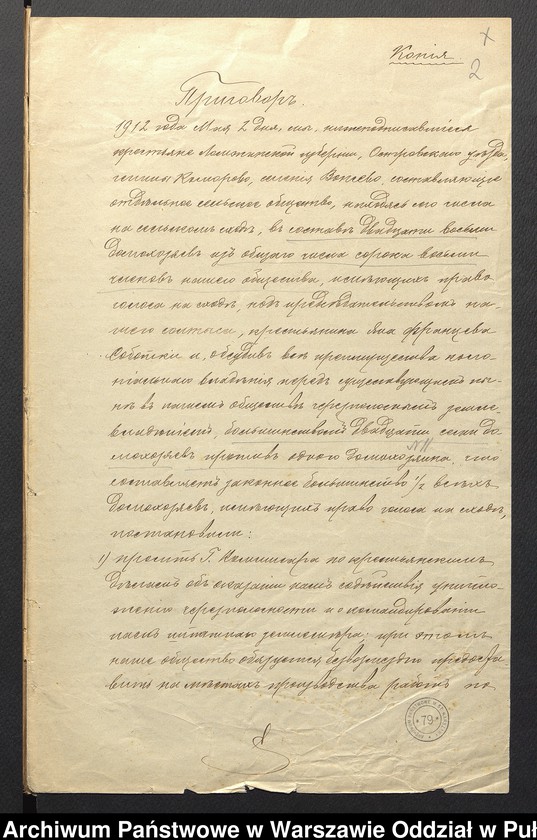 Копія
2
Приговоръ.
1912 года Мая 2 дня, мы, нижеподписавшіеся
крестьяне Ломжинской губерніи, Островскаго уѣзда,
гмины Комарово, селенія Вонсево, составляющіе
отдѣльное сельское общество, находясь сего числа
на сельскомъ сходѣ, въ составѣ двадцати восьми
домохозяевъ изъ общаго числа сорока восьми
членовъ нашего общества, имѣющихъ право
голоса на сходѣ, подъ предсѣдательствомъ на-
шего солтыса, крестьянина Яна Францева
Соботки и, обсудивъ всѣ преимущества коло-
ніальнаго владѣнія передъ существующимъ ны-
нѣ въ нашемъ обществѣ черезполоснымъ земле-
владѣніемъ, большинствомъ двадцати семи до-
мохозяевъ противъ одного домохозяина, что
составляетъ законное большинство 1/2 всѣхъ
домохозяевъ, имѣющихъ право голоса на сходѣ,
постановили:
1) просить Г. Коммисара по крестьянскимъ
дѣламъ объ оказаніи намъ содѣйствія уничто-
женію черезполосности и о командированіи
намъ штатнаго землемѣра; при этомъ
наше общество обязуется безвозмездно предоста-
вить на мѣстахъ производства работъ по
79
Archiwum Państwowe w Warszawie Oddział w Puł